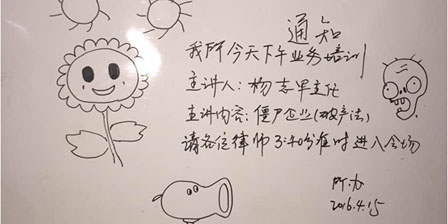 通知
我所今天下午业务培训
主讲人：杨志军主任
主讲内容：僵尸企业（破产法）
请各位律师3:40分准时进入会场
所办
2016.4.15